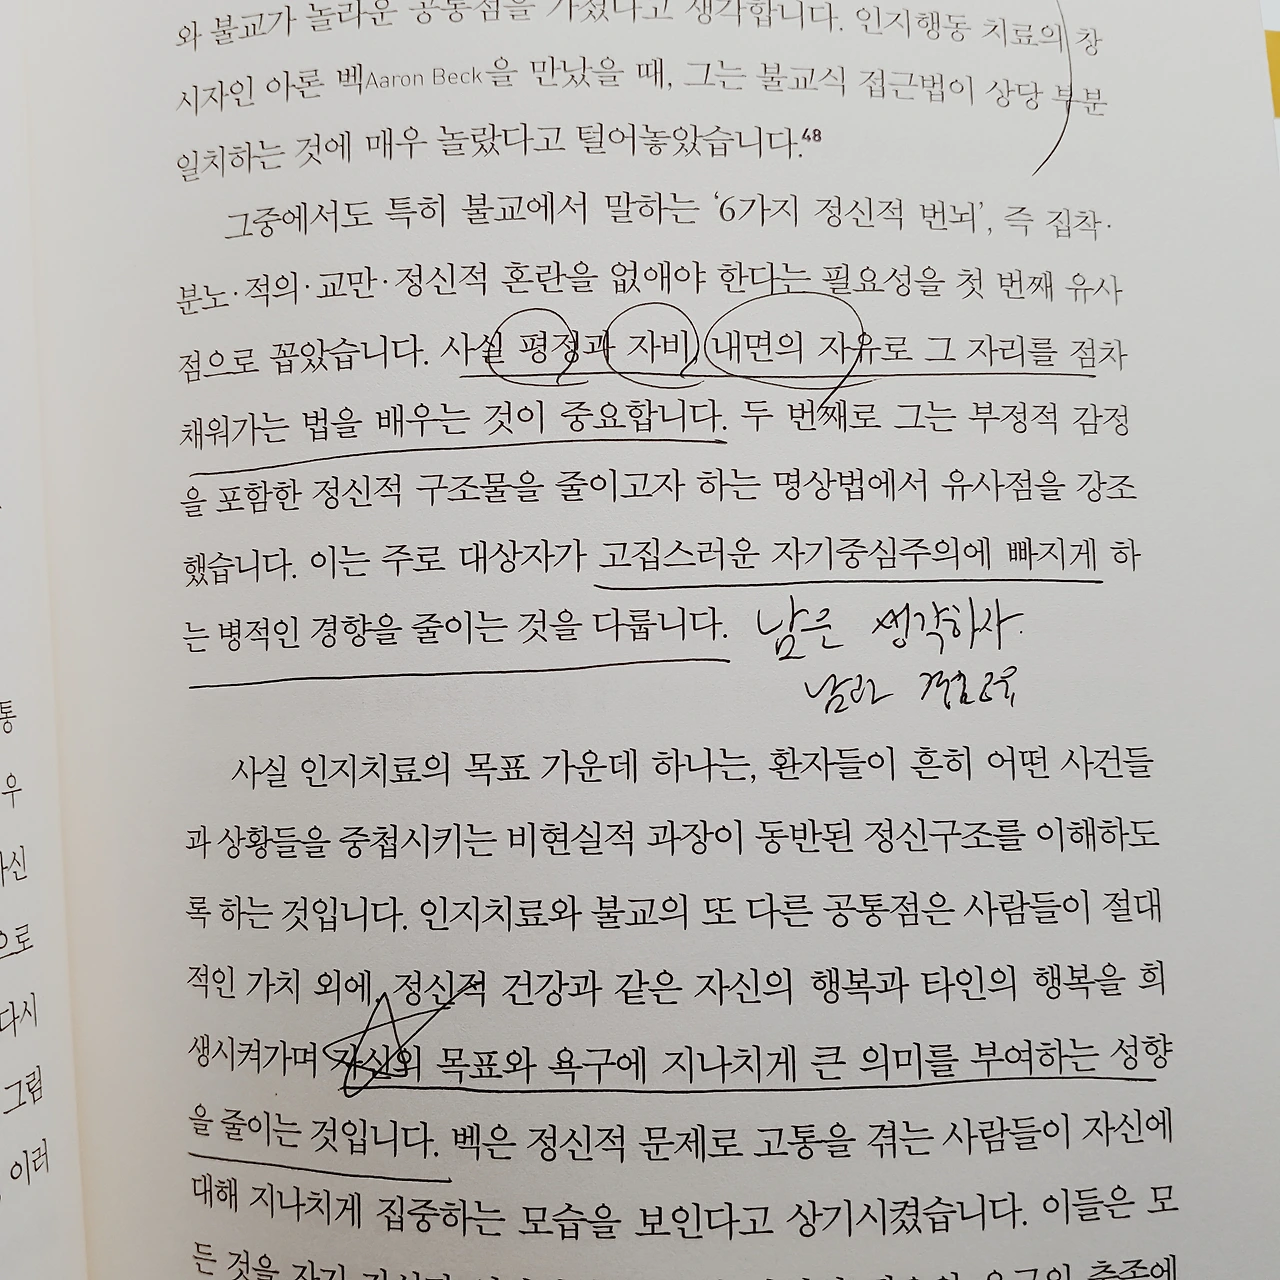 와 불교가 놀라운 공통점을 가졌다고 생각합니다. 인지행동 치료의 창
시자인 아론 벡Aaron Beck을 만났을 때, 그는 불교식 접근법이 상당 부분
일치하는 것에 매우 놀랐다고 털어놓았습니다.48
그중에서도 특히 불교에서 말하는 ‘6가지 정신적 번뇌’, 즉 집착·
분노·적의·교만·정신적 혼란을 없애야 한다는 필요성을 첫 번째 유사
점으로 꼽았습니다. 사실 평정과 자비, 내면의 자유로 그 자리를 점차
채워가는 법을 배우는 것이 중요합니다. 두 번째로 그는 부정적 감정
을 포함한 정신적 구조물을 줄이고자 하는 명상법에서 유사점을 강조
했습니다. 이는 주로 대상자가 고집스러운 자기중심주의에 빠지게 하
는 병적인 경향을 줄이는 것을 다룹니다.
남은 생각하자.
남과
사실 인지치료의 목표 가운데 하나는, 환자들이 흔히 어떤 사건들
과 상황들을 중첩시키는 비현실적 과장이 동반된 정신구조를 이해하도
록 하는 것입니다. 인지치료와 불교의 또 다른 공통점은 사람들이 절대
적인 가치 외에, 정신적 건강과 같은 자신의 행복과 타인의 행복을 희
생시켜가며 자신의 목표와 욕구에 지나치게 큰 의미를 부여하는 성향
을 줄이는 것입니다. 벡은 정신적 문제로 고통을 겪는 사람들이 자신에
대해 지나치게 집중하는 모습을 보인다고 상기시켰습니다. 이들은 모
든 것을 자기
통
우
으로
다시
그럼
이러